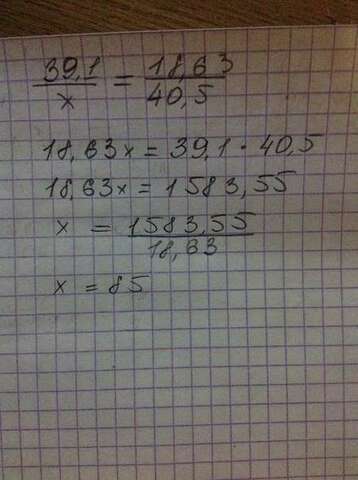 39,1/x = 18,63/40,5
18,63x = 39,1 · 40,5
18,63x = 1583,55
x = 1583,55/18,63
x = 85